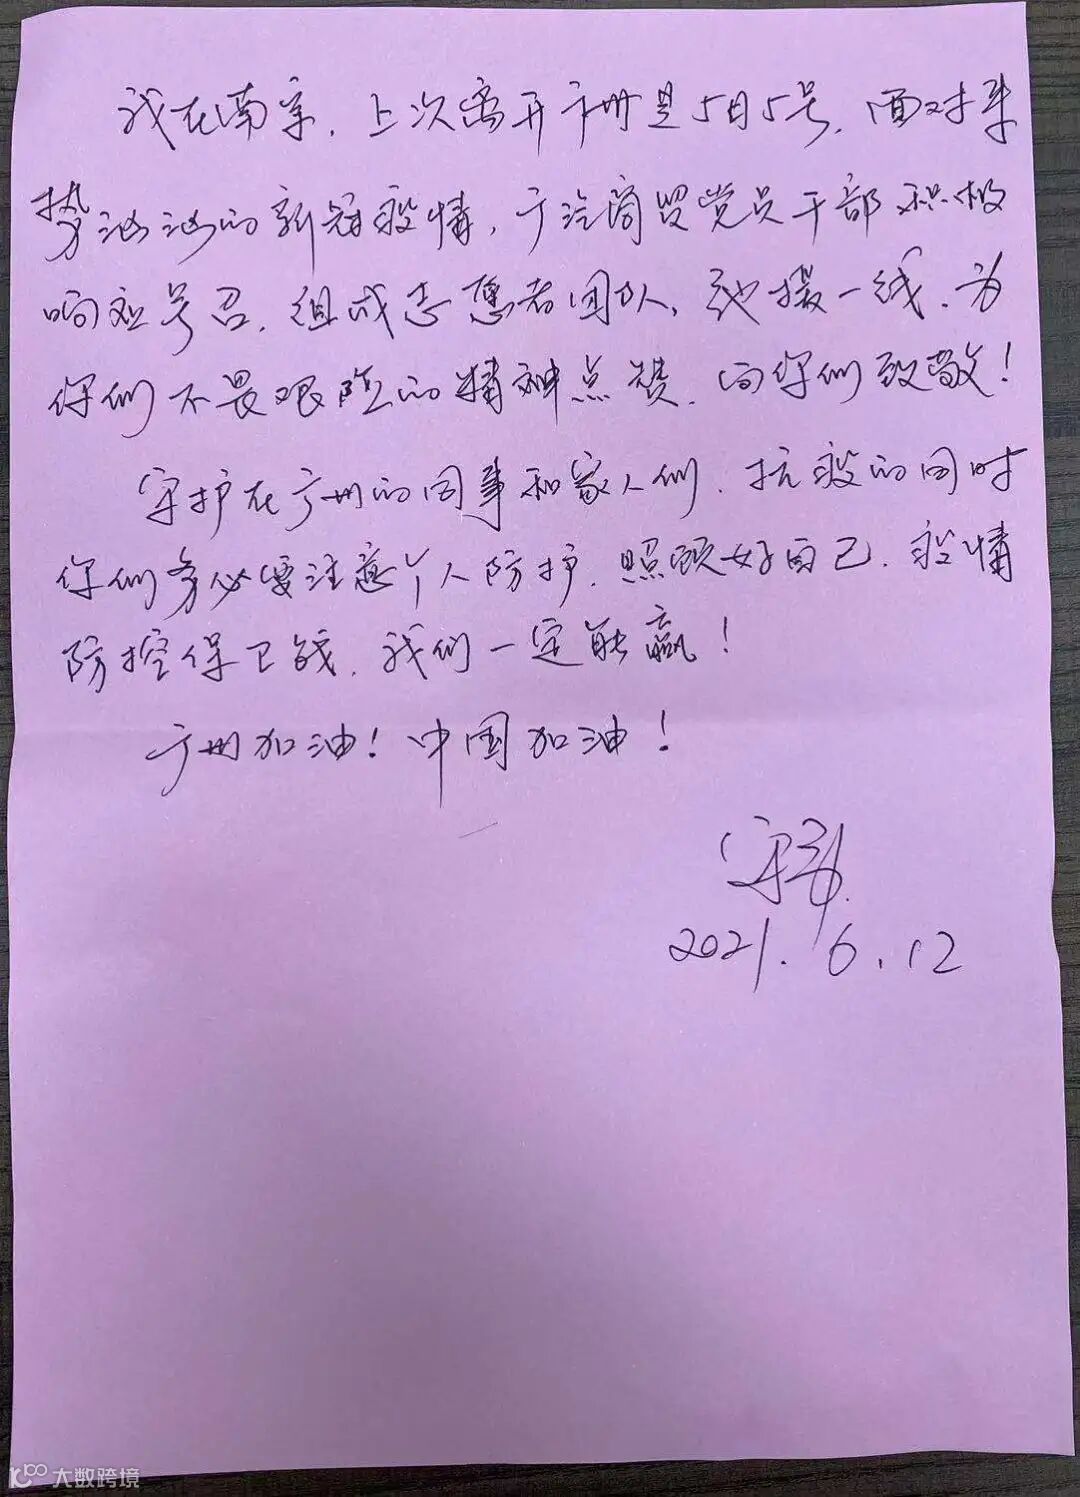 我在南京，上次离开广州是5月5号，面对来
势汹汹的新冠疫情，广汽商贸党员干部积极
响应号召，组成志愿者团队，驰援一线，为
你们不畏艰险的精神点赞，向你们致敬！
守护在广州的同事和家人们，抗疫的同时
你们务必要注意个人防护，照顾好自己，疫情
防控保卫战，我们一定能赢！
广州加油！中国加油！
2021.6.12
大数跨境